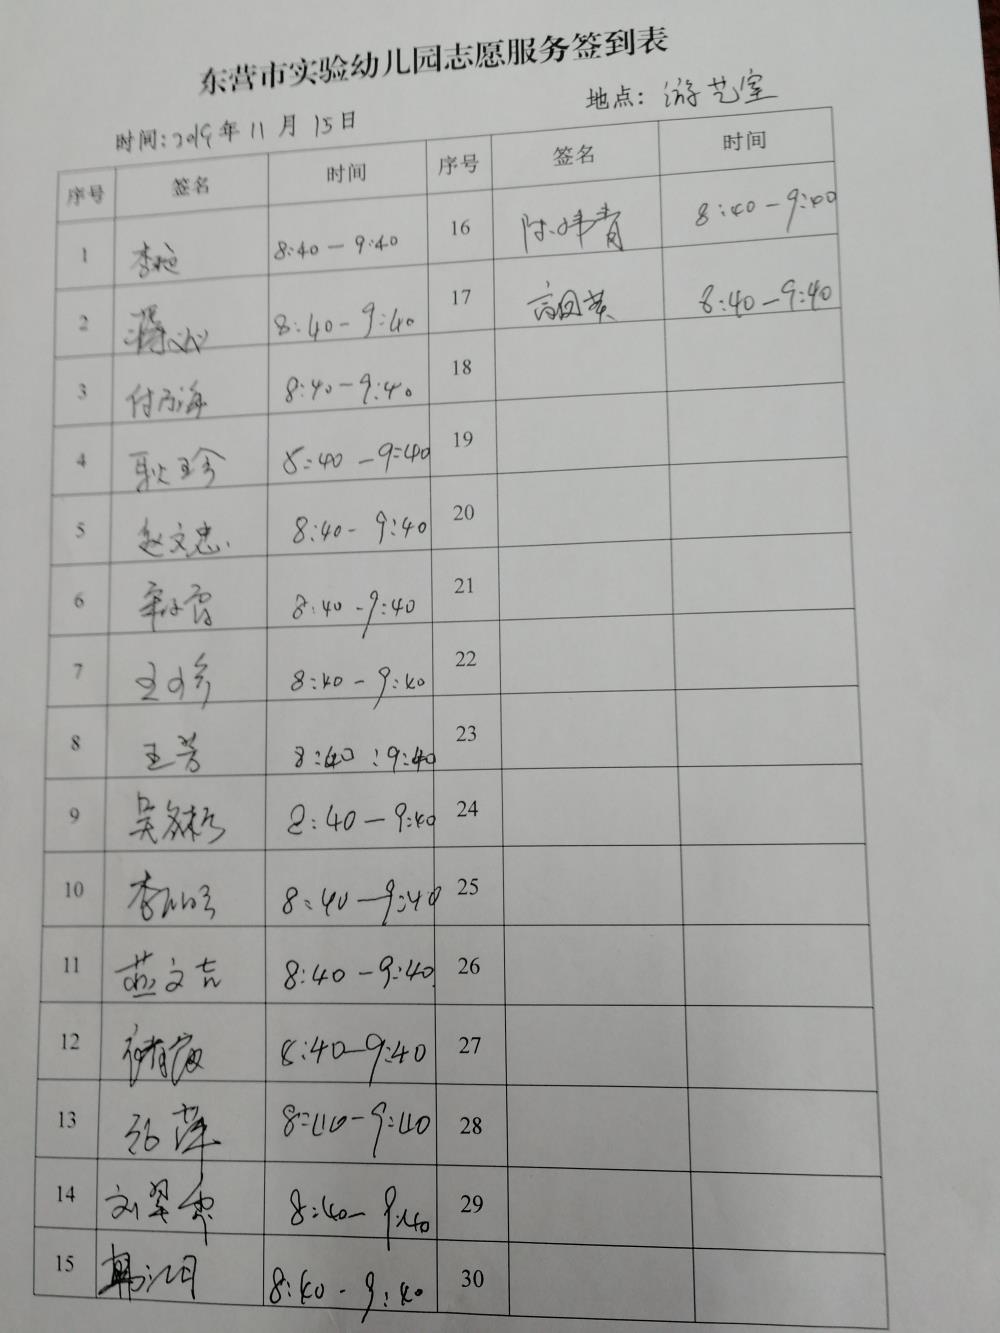 东营市实验幼儿园志愿服务签到表
时间:2019年11月15日 地点:游艺室
序号 签名 时间 序号 签名 时间
1 8:40-9:40 16 8:40-9:40
2 8:40-9:40 17 8:40-9:40
3 8:40-9:40 18
4 耿玉珍 8:40-9:40 19
5 赵文忠 8:40-9:40 20
6 8:40-9:40 21
7 8:40-9:40 22
8 王芳 8:40:9:40 23
9 8:40-9:40 24
10 8:40-9:40 25
11 燕文吉 8:40-9:40 26
12 8:40-9:40 27
13 8:40-9:40 28
14 刘翠 8:40-9:40 29
15 韩江月 8:40-9:40 30